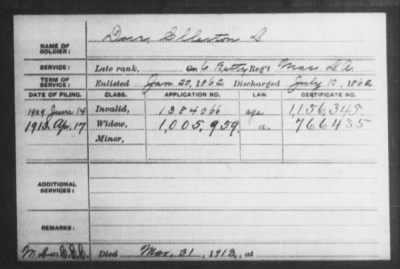 NAME OF SOLDIER: Ellerton D
SERVICE: Late rank, Co 6 Batty Reg't Mass L. A.
TERM OF SERVICE: Enlisted Jan 20, 1862 Discharged July 10, 1862
DATE OF FILING. CLASS. APPLICATION NO. LAW. CERTIFICATE NO.
June 14 Invalid, 1384066 age 1,156,345.
1913, Apr, 17 Widow, 1,005,959. a. 766435
Minor,
ADDITIONAL SERVICES:
REMARKS:
Died Mar, 31, 1913, at